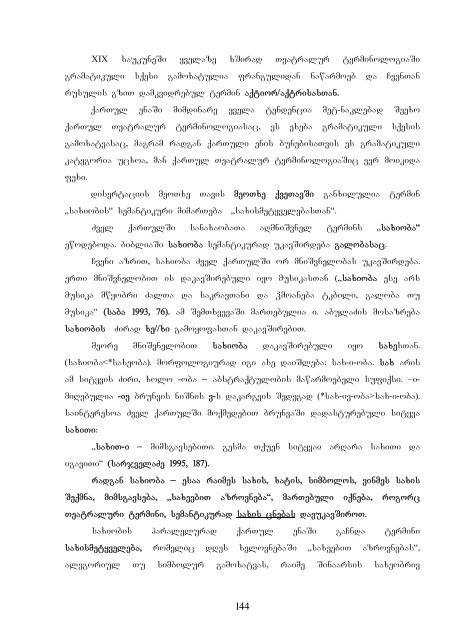 XIX საუკუნეში ყველაზე ხშირად თეატრალურ ტერმინოლოგიაში
გრამატიკული სქესი გამოხატულია ფრანგულიდან ნაწარმოებ და ჩვენთან
რუსულის გზით დამკვიდრებულ ტერმინ აქტიორ/აქტრისასთან.
ქართულ ენაში მიმდინარე ყველა ტენდენცია მეტ-ნაკლებად შეეხო
ქართულ თეატრალურ ტერმინოლოგიასაც, ეს ეხება გრამატიკული სქესის
გამოხატვასაც, მაგრამ რადგან ქართული ენის ბუნებისათვის ეს გრამატიკული
კატეგორია უცხოა, მან ქართულ თეატრალურ ტერმინოლოგიაშიც ვერ მოიკიდა
ფეხი.
დისერტაციის მეოთხე თავის მეოთხე ქვეთავში განხილულია ტერმინ
„სახიობის“ სემანტიკური მიმართება „სახისმეტყველებასთან“.
ძველ ქართულში სანახაობათა აღმნიშვნელ ტერმინს „სახიობა“
ეწოდებოდა. ბიბლიაში სახიობა სემანტიკურად უკავშირდება გალობასაც.
ჩვენი აზრით, სახიობა ძველ ქართულში ორ მნიშვნელობას უკავშირდება.
ერთი მნიშვნელობით ის დაკავშირებული იყო მუსიკასთან („სახიობა ესე არს
მუსიკა მწყობრი ძალთა და საკრავთანი და ჴმოანება ტკბილი, გალობა თუ
მუსიკა“ (საბა 1993, 76). ამ შემთხვევაში მართებულია ი. აბულაძის მოსაზრება
სახიობის ძირად ხე//ხი გამოყოფასთან დაკავშირებით.
მეორე მნიშვნელობით სახიობა დაკავშირებული იყო სახესთან.
(სახიობა<*სახეობა). მორფოლოგიურად იგი ასე დაიშლება: სახ-ი-ობა. სახ არის
ამ სიტყვის ძირი, ხოლო -ობა – აბსტრაქტულობის მაწარმოებელი სუფიქსი. –ი-
მიღებულია -ივ ბრუნვის ნიშნის ვ-ს დაკარგვის შედეგად (*სახ-ივ-ობა>სახ-ი-ობა).
საინტერესოა ძველ ქართულში მოქმედებით ბრუნვაში დადასტურებული სიტყვა
სახითი:
„სახით-ი – მიმსგავსებითი. გესმა თქუენ სიტყვაჲ არღარა სახითი და
იგავითი“ (სარჯველაძე 1995, 187).
რადგან სახიობა – ესაა რაიმეს სახის, ხატის, სიმბოლოს, ვინმეს სახის
შექმნა, მიმსგავსება, „სახეებით აზროვნება“, მართებული იქნება, როგორც
თეატრალური ტერმინი, სემანტიკურად სახის ცნებას დავუკავშიროთ.
სახიობის პარალელურად ქართულ ენაში გაჩნდა ტერმინი
სახისმეტყველება, რომელიც დღეს ხელოვნებაში „სახეებით აზროვნებას“,
ალეგორიულ თუ სიმბოლურ გამოხატვას, რაიმე შინაარსის სახეობრივ
144